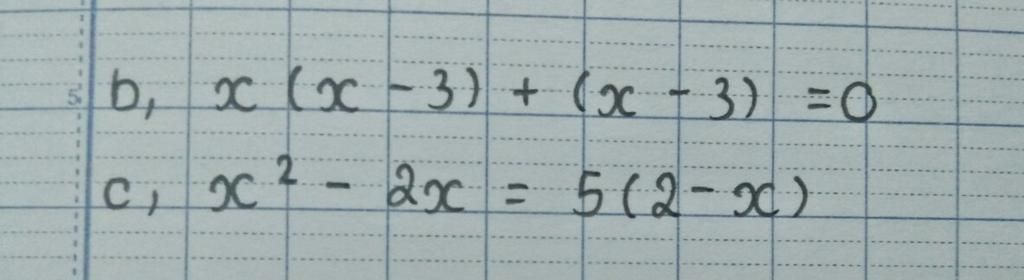 b, x (x - 3) + (x - 3) = 0
c, x² - 2x = 5(2 - x)